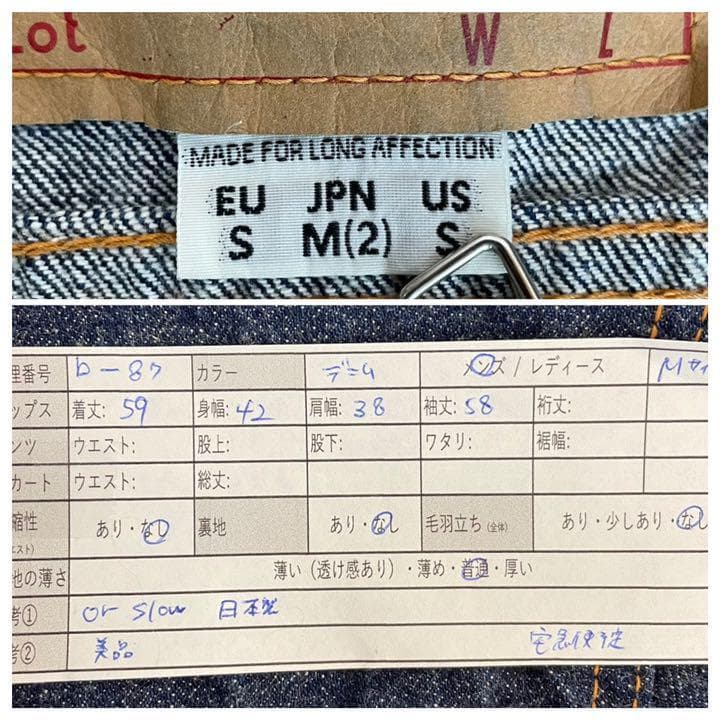 Lot W L
MADE FOR LONG AFFECTION
EU JPN US
S M(2) S
理番号 b-87 カラー デニム メンズ / レディース Mサイ
ップス 着丈: 59 身幅: 42 肩幅: 38 袖丈: 58 裄丈:
ンツ ウエスト: 股上: 股下: ワタリ: 裾幅:
カート ウエスト: 総丈:
縮性 あり・なし 裏地 あり・なし 毛羽立ち (全体) あり・少しあり・なし
エスト)
地の薄さ 薄い (透け感あり)・薄め・普通・厚い
考① or slow 日本製
考② 美品 宅急便予定